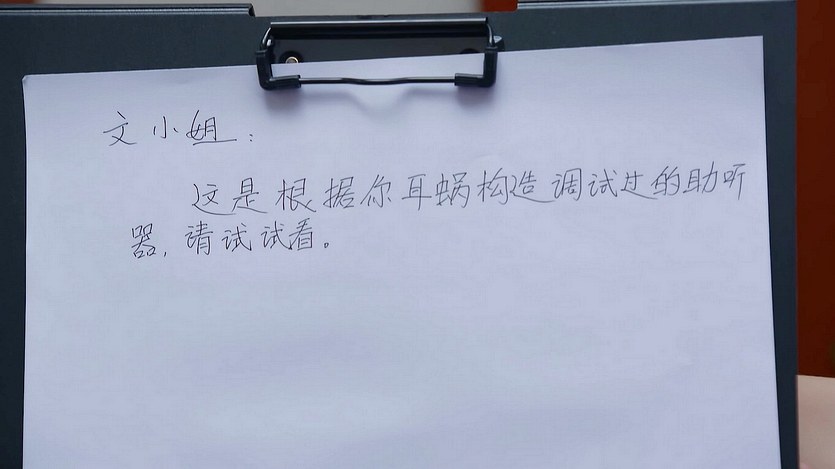 文小姐：
这是根据你耳蜗构造调试过的助听
器，请试试看。